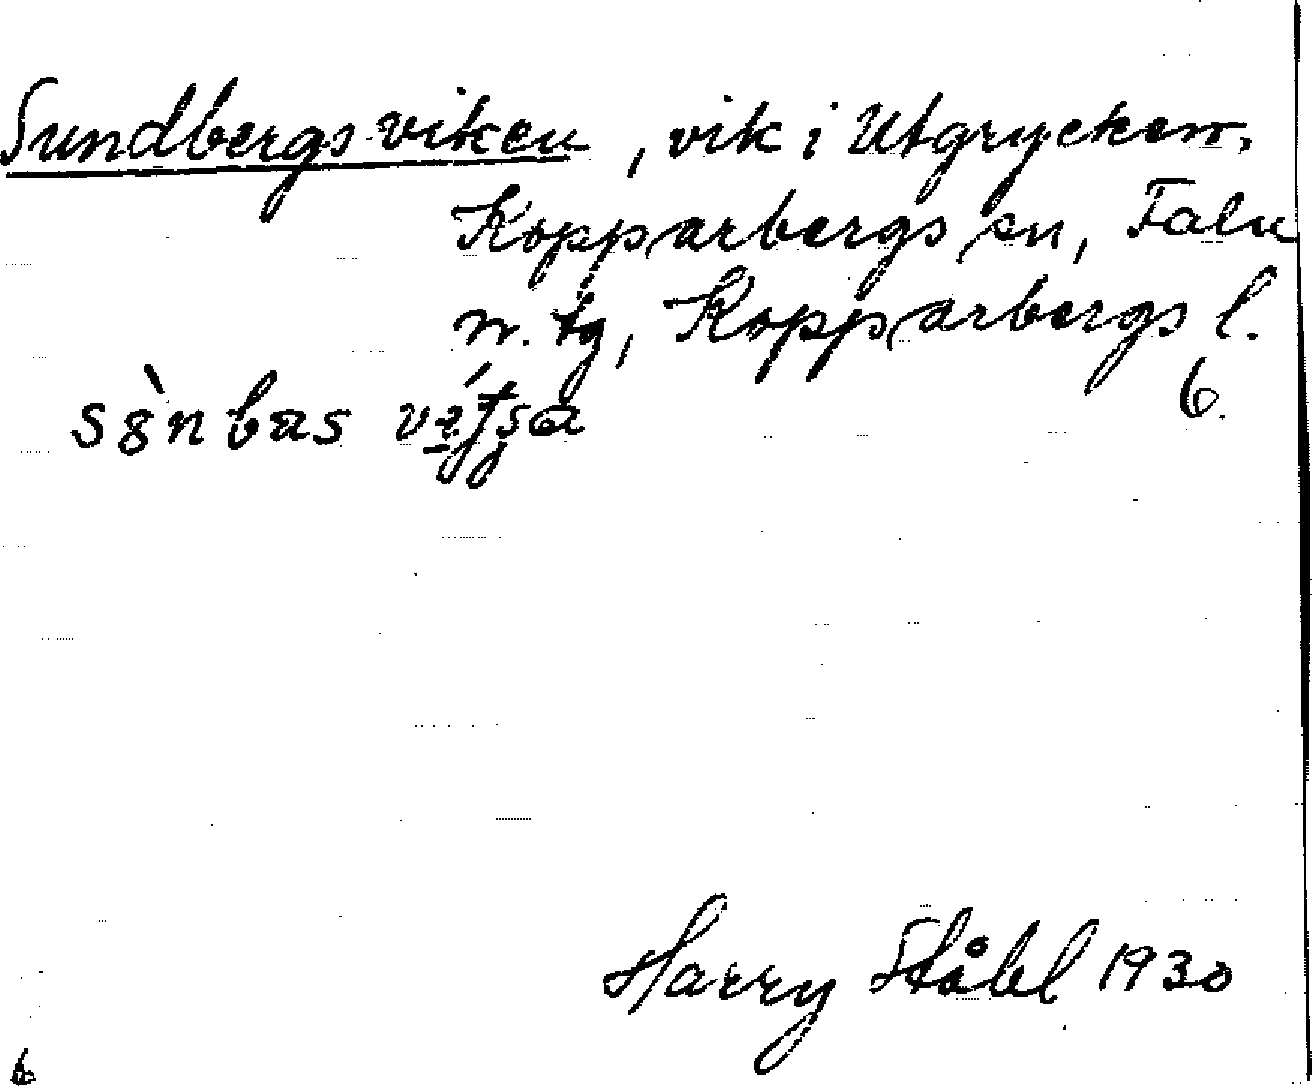 Sundbergsviken, vik i Utgrycken,
Kopparbergs sn, Falu
n. tg, Kopparbergs l.
6.
Harry Ståhl 1930